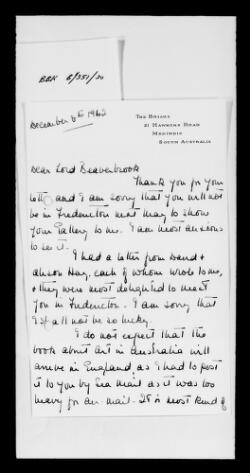 BBK 6/351/20
THE BRIARS
21 HAWKERS ROAD
MEDINDIE
SOUTH AUSTRALIA
December 6th 1962
Dear Lord Beaverbrook
Thank you for your
letter and I am sorry that you will not
be in Fredericton next May to show
your Gallery to me. I am most anxious
to see it.
I had a letter from David &
Alison Hay, each of whom wrote to me,
& they were most delighted to meet
you in Fredericton. I am sorry that
I shall not be so lucky.
I do not expect that the
book about Art in Australia will
arrive in England as I had to post
it to you by Sea Mail as it was too
heavy for air-mail. It is most kind of